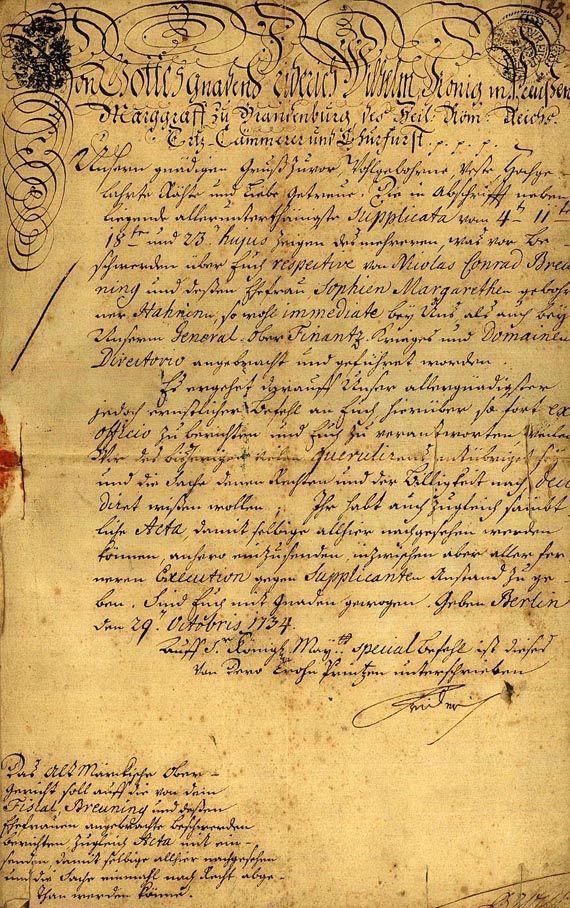 Von Gottes gnaden Friderich Wilhelm, König in Preußen
Marggraff zu Brandenburg, des Heil. Röm. Reichs
Ertz-Cämmerer und Churfürst. p. p. p. p.
Unsern gnädigen Gruß zuvor, Wohlgebohrne, Veste, Hochge-
lahrte Räthe und liebe Getreue. Die in Abschrifft neben
liegende allerunterthänigste Supplicata vom 4ten 11ten
18ten und 23ten hujus zeigen des mehreren, was vor Be-
schwerden über Euch respective von Nicolas Conrad Breu-
ning und deßen Ehefrau Sophien Margarethen gebohr-
ner Hahnen, so wohl immediate bey Uns, als auch bey
Unserem General-Ober-Finantz-Krieges und Domainen
Directorio angebracht und geführet worden
Es ergehet darauff Unser allergnädigster
jedoch ernstlicher Befehl an Euch hierüber so fort ex
officio zu berichten und Euch zu verantworten, weilen
Wir des bisherigen vielen Querulirens
und die Sache denen Rechten und der Billigkeit nach deci-
diret wißen wollen, Ihr habt auch zugleich sämbt-
liche Acta, damit selbige allhier nachgesehen werden
können, anhero einzusenden, inzwischen aber aller fer-
neren Execution gegen Supplicanten Anstand zu ge-
ben. Sind Euch mit Gnaden gewogen. Geben Berlin
den 29. Octobris 1734
Auff Sr. Königl. Mayt. special Befehl ist dieses
von dero Crohn Printzen unterschrieben
Friderich
Das Alt Märckische Ober-
Gericht soll auff die von dem
Fiscal Breuning und deßen
Ehefrauen angebrachte beschwerden
berichten, zugleich Acta mit ein-
senden, damit selbige allhier nachgesehen
und die Sache einmahl nach Recht abge-
than werden könne.